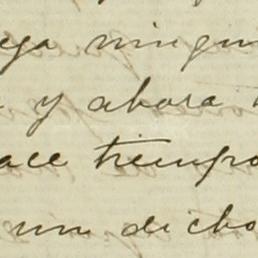 ningun
y ahora
hace tiempo
un dicho